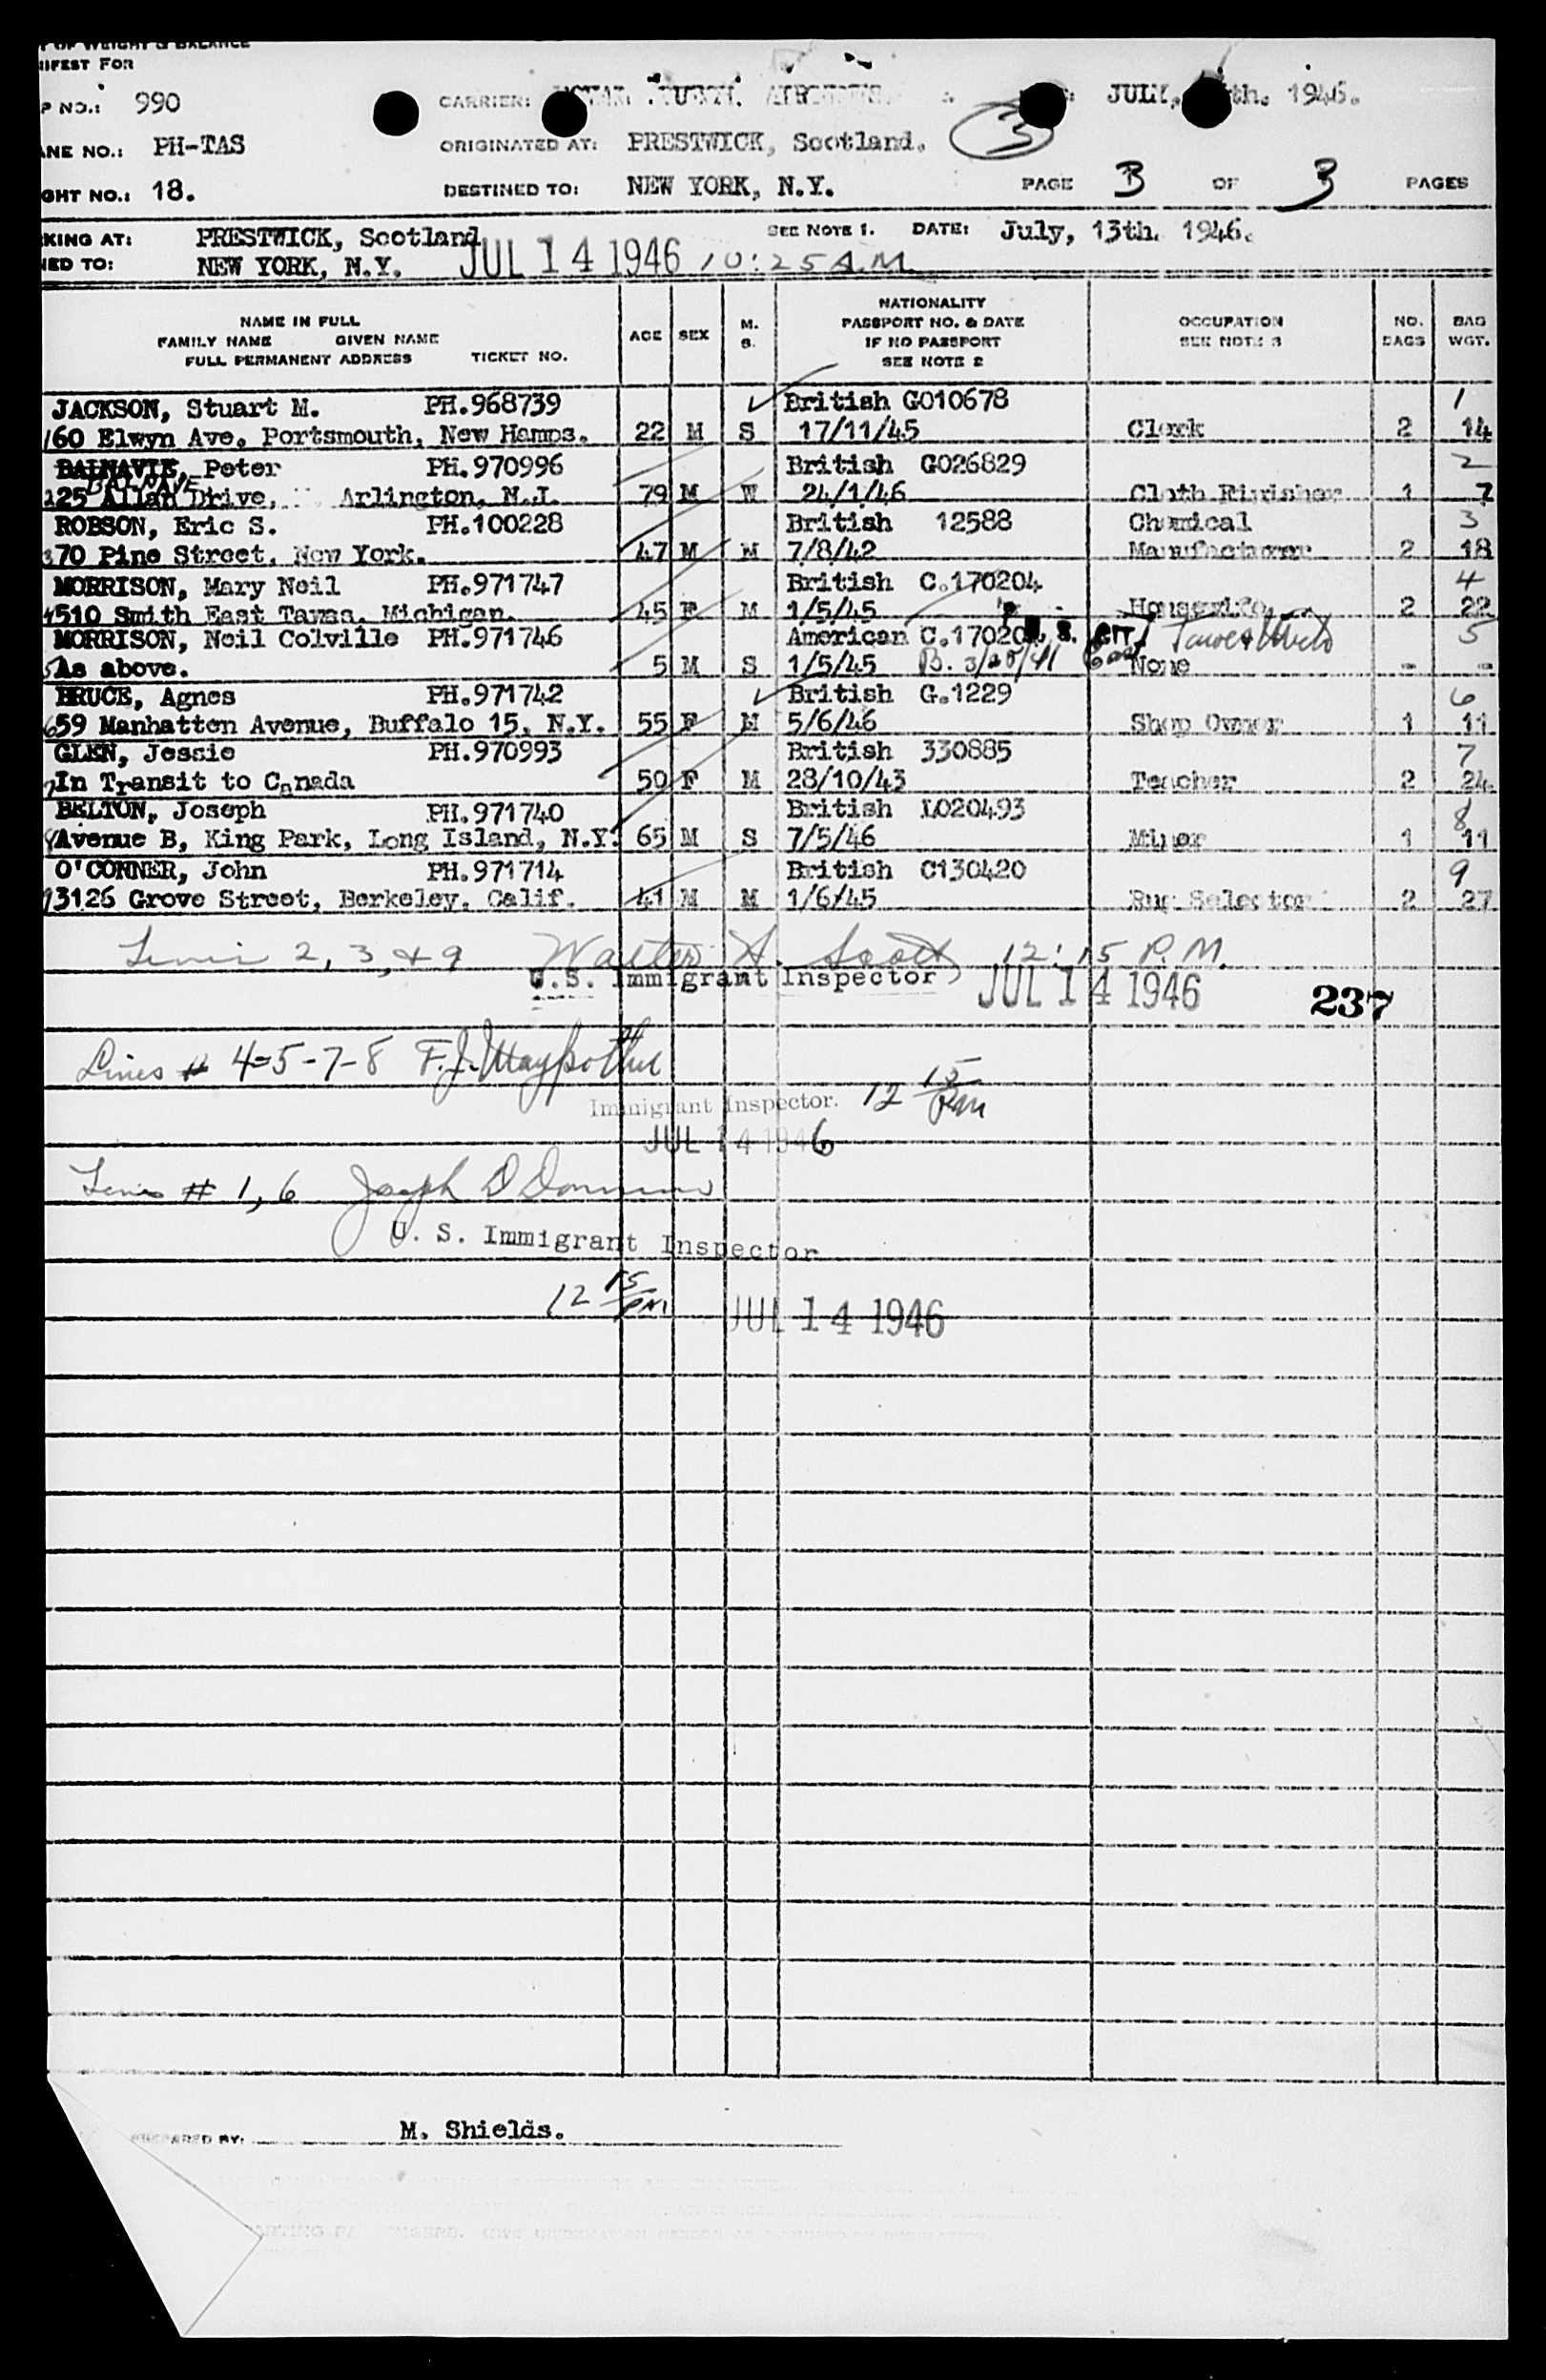 OF WEIGHT & BALANCE
IFEST FOR
P NO.: 990 CARRIER: JULY, th. 1946.
ANE NO.: PH-TAS ORIGINATED AT: PRESTWICK, Scotland. 3
GHT NO.: 18. DESTINED TO: NEW YORK, N.Y. PAGE 3 OF 3 PAGES
KING AT: PRESTWICK, Scotland SEE NOTE 1. DATE: July, 13th. 1946.
NED TO: NEW YORK, N.Y. JUL 14 1946 10:25 A.M.
NAME IN FULL
FAMILY NAME GIVEN NAME
FULL PERMANENT ADDRESS TICKET NO.
AGE SEX M. S.
NATIONALITY
PASSPORT NO. & DATE
IF NO PASSPORT
SEE NOTE 2
OCCUPATION
SEE NOTE 3
NO. BAGS
BAG WGT.
JACKSON, Stuart M. PH.968739 British G010678 1
1 60 Elwyn Ave. Portsmouth, New Hamps. 22 M S 17/11/45 Clerk 2 14
BALNAVIE, Peter PH.970996 British G026829 2
BALNAVE
2 25 Allan Drive, Arlington, N.J. 79 M W 24/1/46 Cloth Finisher 1 7
ROBSON, Eric S. PH.100228 British 12588 Chemical 3
3 70 Pine Street, New York. 47 M M 7/8/42 Manufacturer 2 18
MORRISON, Mary Neil PH.971747 British C.170204 4
4 510 Smith East Tawas, Michigan. 45 F M 1/5/45 Housewife 2 22
MORRISON, Neil Colville PH.971746 American C.17020 S. CIT 5
5 As above. 5 M S 1/5/45 B. 3/20/41 None - -
BRUCE, Agnes PH.971742 British G.1229 6
6 59 Manhatton Avenue, Buffalo 15, N.Y. 55 F M 5/6/46 Shop Owner 1 11
GLEN, Jessie PH.970993 British 330885 7
7 In Transit to Canada 50 F M 28/10/43 Teacher 2 24
BELTON, Joseph PH.971740 British L020493 8
8 Avenue B, King Park, Long Island, N.Y. 65 M S 7/5/46 Miner 1 11
O'CONNER, John PH.971714 British C130420 9
9 3126 Grove Street, Berkeley, Calif. 41 M M 1/6/45 Rug Selector 2 27
Lines 2, 3, & 9 Walter A. Scott 12:15 P.M.
U.S. Immigrant Inspector JUL 14 1946 237
Lines # 4-5-7-8 F.J.
Immigrant Inspector. 12 15 PM
JUL 14 1946
Lines # 1, 6 Joseph D
U. S. Immigrant Inspector
12 15 PM JUL 14 1946
PREPARED BY: M. Shields.